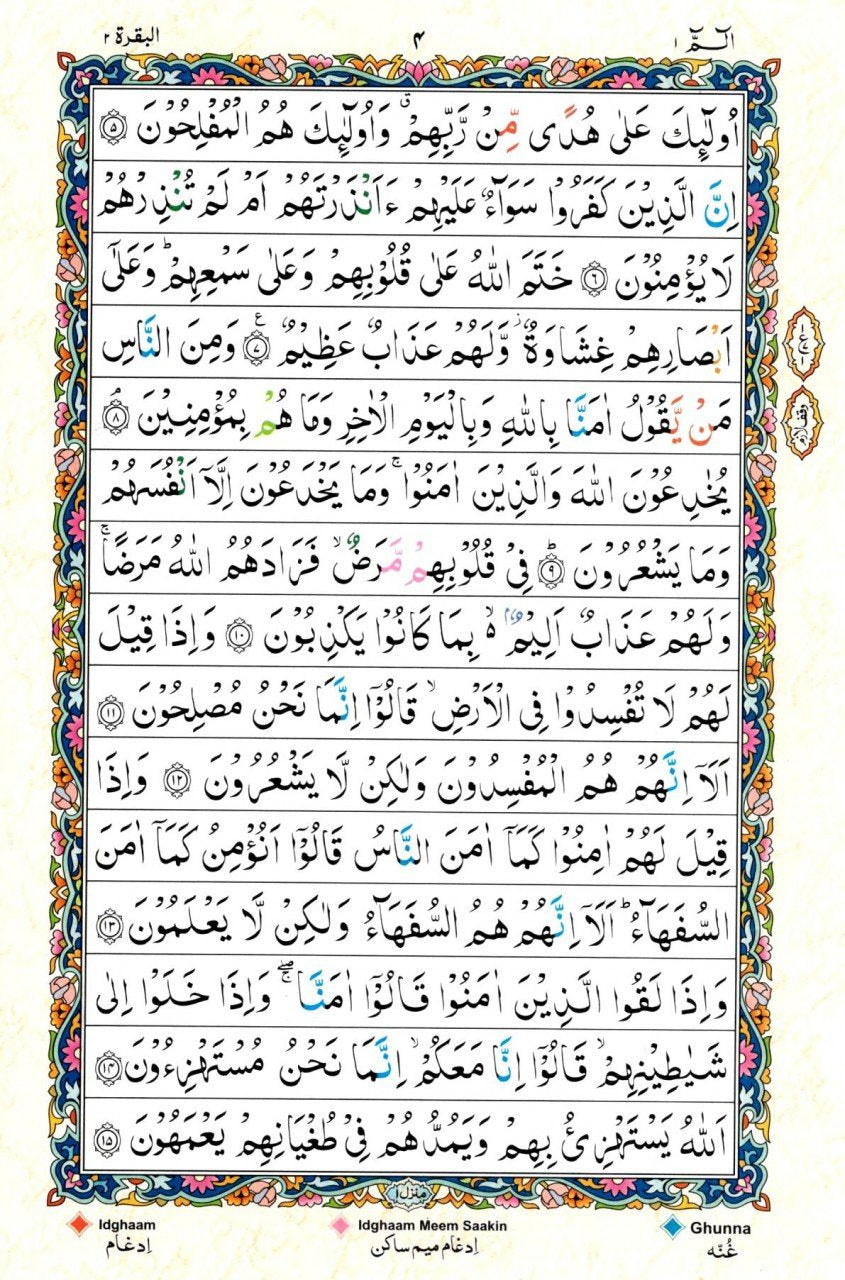 الٓمّٓ ١ ۴ البقرة ٢
اُولٰٓئِكَ عَلٰى هُدًى مِّنْ رَّبِّهِمْ ۗ وَاُولٰٓئِكَ هُمُ الْمُفْلِحُوْنَ ۝٥
اِنَّ الَّذِيْنَ كَفَرُوْا سَوَآءٌ عَلَيْهِمْ ءَاَنْذَرْتَهُمْ اَمْ لَمْ تُنْذِرْهُمْ
لَا يُؤْمِنُوْنَ ۝٦ خَتَمَ اللّٰهُ عَلٰى قُلُوْبِهِمْ وَعَلٰى سَمْعِهِمْ ؕ وَعَلٰٓى
اَبْصَارِهِمْ غِشَاوَةٌ ؗ وَّلَهُمْ عَذَابٌ عَظِيْمٌ ۝٧ ع وَمِنَ النَّاسِ
مَنْ يَّقُوْلُ اٰمَنَّا بِاللّٰهِ وَبِالْيَوْمِ الْاٰخِرِ وَمَا هُمْ بِمُؤْمِنِيْنَ ۝٨ۘ
وقف لازم
يُخٰدِعُوْنَ اللّٰهَ وَالَّذِيْنَ اٰمَنُوْا ۚ وَمَا يَخْدَعُوْنَ اِلَّاۤ اَنْفُسَهُمْ
وَمَا يَشْعُرُوْنَ ۝٩ؕ فِيْ قُلُوْبِهِمْ مَّرَضٌ ۙ فَزَادَهُمُ اللّٰهُ مَرَضًا ۚ
وَلَهُمْ عَذَابٌ اَلِيْمٌ ۢ ۙ۬ بِمَا كَانُوْا يَكْذِبُوْنَ ۝١٠ وَاِذَا قِيْلَ
لَهُمْ لَا تُفْسِدُوْا فِى الْاَرْضِ ۙ قَالُوْۤا اِنَّمَا نَحْنُ مُصْلِحُوْنَ ۝١١
اَلَاۤ اِنَّهُمْ هُمُ الْمُفْسِدُوْنَ وَلٰكِنْ لَّا يَشْعُرُوْنَ ۝١٢ وَاِذَا
قِيْلَ لَهُمْ اٰمِنُوْا كَمَاۤ اٰمَنَ النَّاسُ قَالُوْۤا اَنُؤْمِنُ كَمَاۤ اٰمَنَ
السُّفَهَآءُ ؕ اَلَاۤ اِنَّهُمْ هُمُ السُّفَهَآءُ وَلٰكِنْ لَّا يَعْلَمُوْنَ ۝١٣
وَاِذَا لَقُوا الَّذِيْنَ اٰمَنُوْا قَالُوْۤا اٰمَنَّا ۖۚ وَاِذَا خَلَوْا اِلٰى
شَيٰطِيْنِهِمْ ۙ قَالُوْۤا اِنَّا مَعَكُمْ ۙ اِنَّمَا نَحْنُ مُسْتَهْزِءُوْنَ ۝١٤
اَللّٰهُ يَسْتَهْزِئُ بِهِمْ وَيَمُدُّهُمْ فِيْ طُغْيَانِهِمْ يَعْمَهُوْنَ ۝١٥
منزل ١
Idghaam Idghaam Meem Saakin Ghunna
اِدغام اِدغام میم ساکن غُنّه